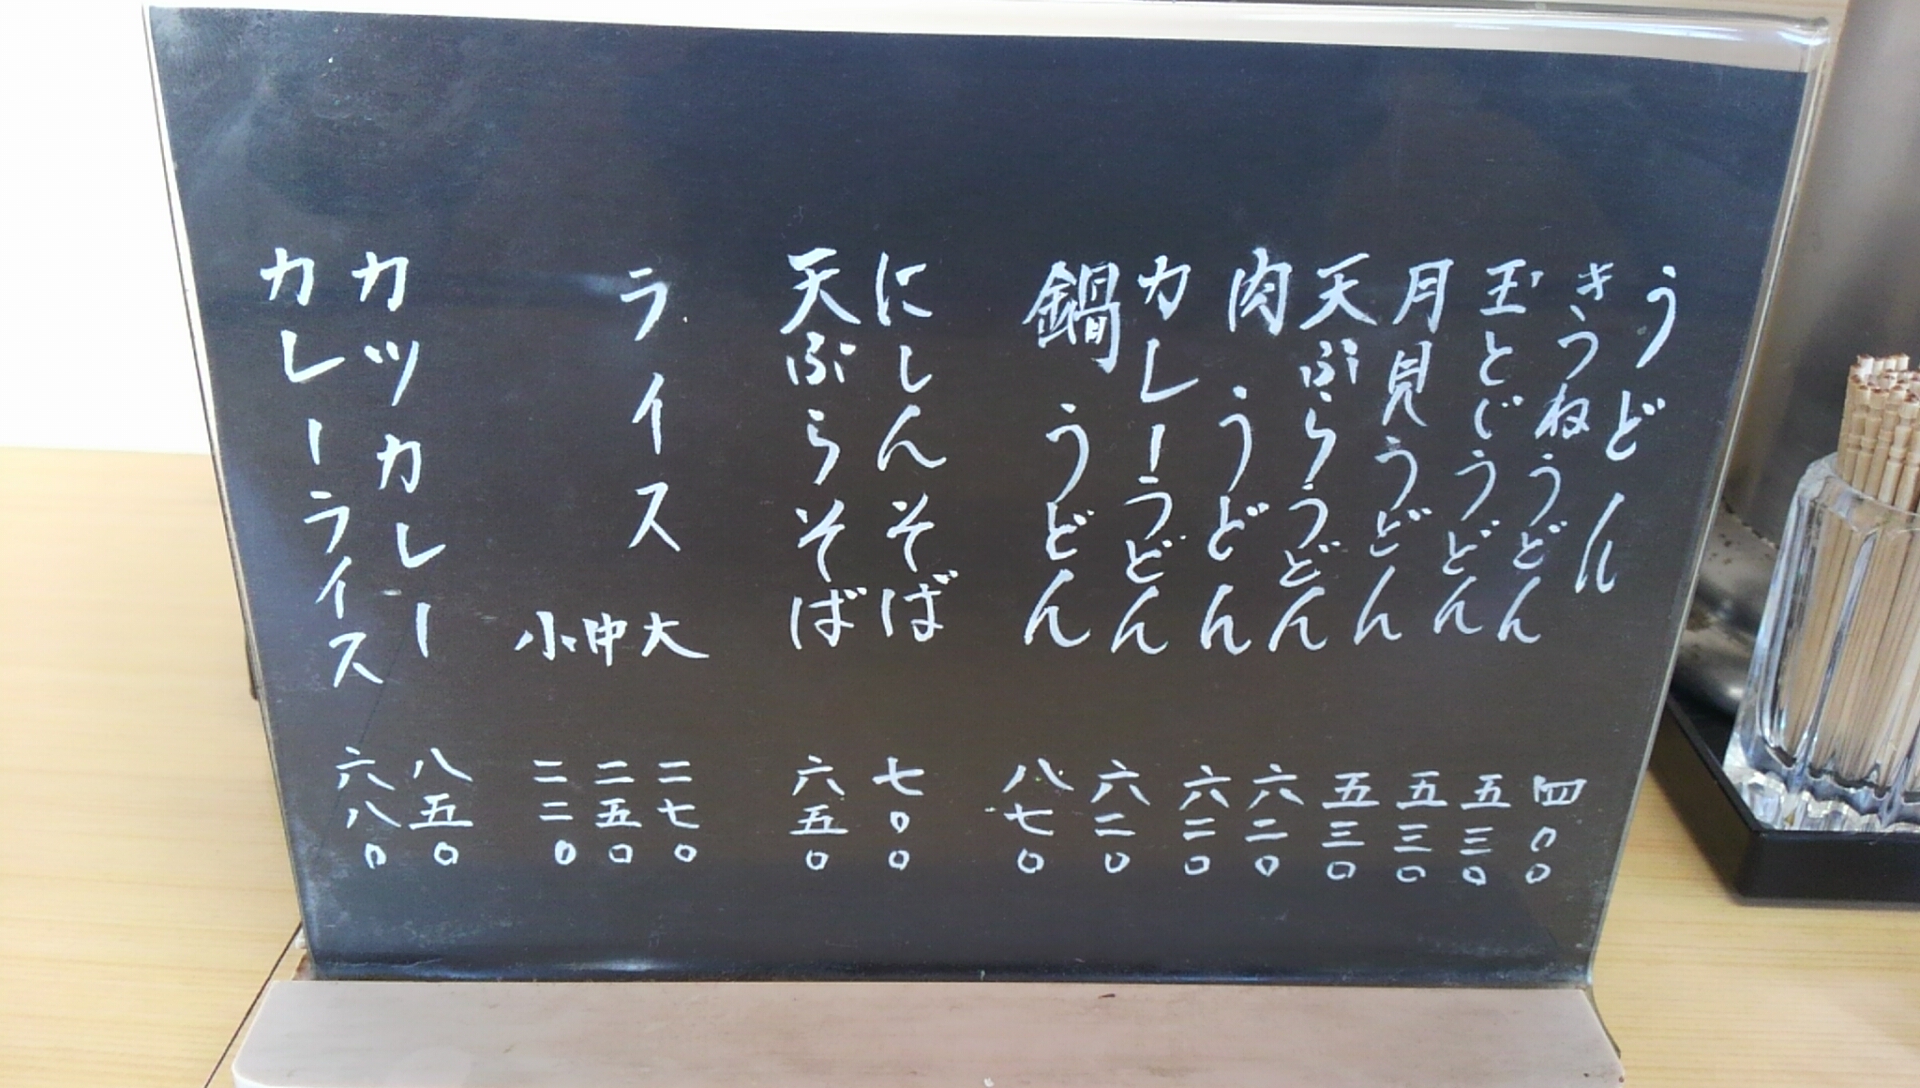 うどん 四〇〇
きつねうどん 五三〇
玉とじうどん 五三〇
月見うどん 五三〇
天ぷらうどん 六二〇
肉うどん 六二〇
カレーうどん 六二〇
鍋うどん 八七〇
にしんそば 七〇〇
天ぷらそば 六五〇
ライス 大 二七〇
中 二五〇
小 二二〇
カツカレー 八五〇
カレーライス 六八〇